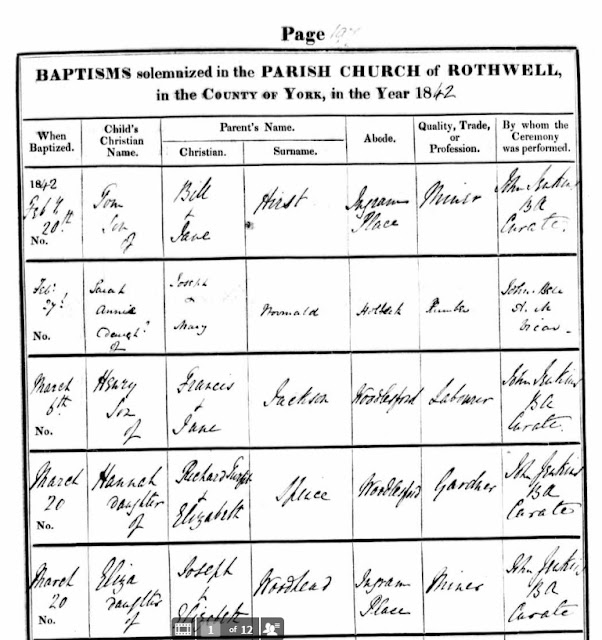 Page
BAPTISMS solemnized in the PARISH CHURCH of ROTHWELL,
in the COUNTY OF YORK, in the Year 1842
When Baptized.
Child's Christian Name.
Parent's Name.
Christian.
Surname.
Abode.
Quality, Trade, or Profession.
By whom the Ceremony was performed.
1842
Feby
20th
No.
Tom
Son
of
Bill
+
Jane
Hirst
Ingram
Place
Miner
John Jenkins
BA
Curate.
Feby
27th
No.
Sarah
Annie
Daughr
of
Joseph
+
Mary
Wormald
Holbeck
John Bell
Vicar
March
6th
No.
Henry
Son
of
Francis
+
Jane
Jackson
Woodlesford
Labourer
John Jenkins
BA
Curate.
March
20
No.
Hannah
Daughter
of
Richard
+
Elizabeth
Spice
Woodlesford
Gardner
John Jenkins
BA
Curate
March
20
No.
Eliza
Daughter
of
Joseph
+
Elizabeth
Woodhead
Ingram
Place
Miner
John Jenkins
BA
Curate
1 of 12